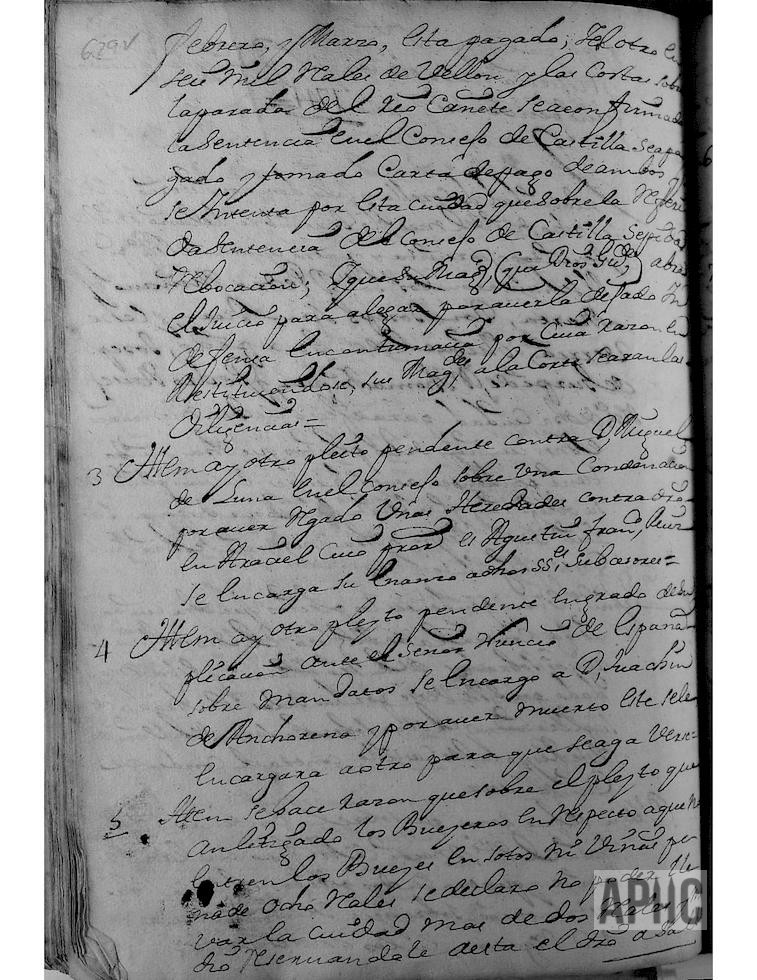 679v
Febrero, y Marzo, esta pagado, y el otro en
seis Mil Rales de Vellon y las Costas sobre
la parada del Rio Cañete se a confirmado
la Sentencia en el Consejo de Castilla se a pa
gado y tomado Carta de pago de ambos y
se Intenta por esta ciudad que sobre la Referi
da Sentencia del Consejo de Castilla se pida
Rebocacion, y que su Magd, (que Dios Gde) abra
el Juicio para alegar por averla dejado In
defensa en contumacia por cuia razon en
Restituiendose, su Magd, a la Corte se aran las
Diligencias=
3 Ittem ay otro pleito pendente contra D. Miguel
de Luna en el Consejo sobre una Condenacion
por aver Regado Unas Heredades contra dro
en Aradiel cuio es Agustin Franco,
se encarga su a dhos SS.es Subcesores=
4 Ittem ay otro pleyto pendente en grado de su
plicacion ante el Señor Nuncio de España
sobre Mandatos se encargo a D. Juachin
de Anchorena y por aver muerto este se le
encargara a otro para que se aga Ver=
5 Ittem se hace razon que sobre el pleyto que
an litigado los Bueyeros en Respecto a que no
entren los Bueyes en sotos ni Viñas
de ocho Rales se declaro no poder lle
var la ciudad mas de dos Rales
dro Reservandole desta el dro a
APHC